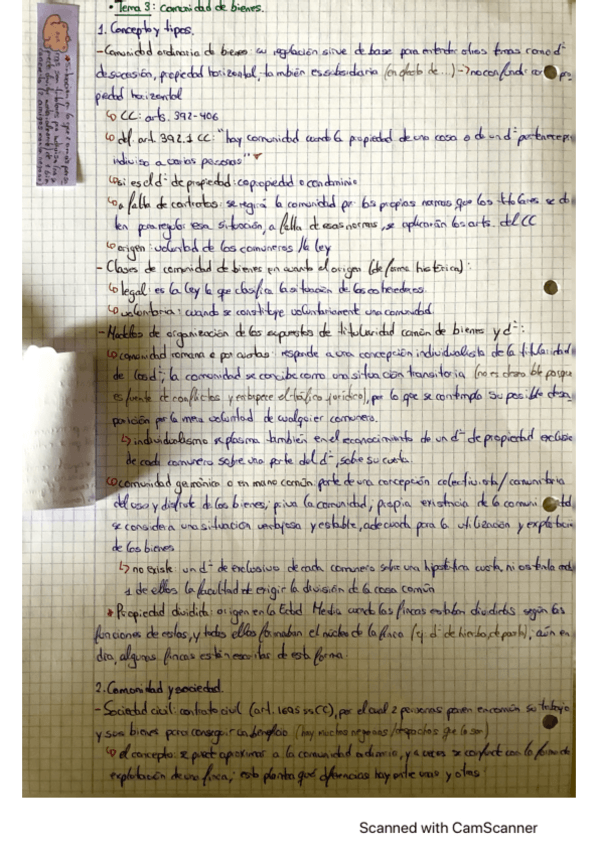 • Tema 3: Comunidad de bienes.
1. Concepto y tipos.
- Comunidad ordinaria de bienes: su regulación sirve de base para entender otras formas como dº
de sucesión, propiedad horizontal, también es subsidiaria (en defecto de...) → no confundir con pro
piedad horizontal
↳ CC: arts. 392-406
↳ def. art. 392.1 CC: "hay comunidad cuando la propiedad de una cosa o de un dº pertenece pro
indiviso a varias personas"
↳ si es el dº de propiedad: copropiedad o condominio
↳ a falta de contratos: se regirá la comunidad por las propias normas que los titulares se
den para regular esa situación, a falta de esas normas, se aplicarán los arts. del CC
↳ origen: voluntad de los comuneros / la ley
- Clases de comunidad de bienes en cuanto el origen (de forma histórica):
↳ legal: es la ley la que clasifica la situación de los coherederos.
↳ voluntaria: cuando se constituye voluntariamente una comunidad.
- Modelos de organización de los supuestos de titularidad común de bienes y dº:
↳ comunidad romana o por cuotas: responde a una concepción individualista de la titularidad
de los dº; la comunidad se concibe como una situación transitoria (no es deseable porque
es fuente de conflictos y entorpece el tráfico jurídico), por lo que se contempla su posible desa
parición por la mera voluntad de cualquier comunero.
↳ individualismo se plasma también en el reconocimiento de un dº de propiedad exclusivo
de cada comunero sobre una parte del dº, sobre su cuota.
↳ comunidad germánica o en mano común: parte de una concepción colectivista/comunitaria
del uso y disfrute de los bienes; prima la comunidad; propia existencia de la comuni dad
se considera una situación ventajosa y estable, adecuada para la utilización y explotación
de los bienes
↳ no existe: un dº exclusivo de cada comunero sobre una hipotética cuota, ni ostenta cada
1 de ellos la facultad de exigir la división de la cosa común
* Propiedad dividida: origen en la Edad Media cuando las fincas estaban divididas según las
funciones de estas, y todas ellas formaban el núcleo de la finca (ej. dº de hierba, de pasto), aún en
día, algunas fincas están escritas de esta forma.
2. Comunidad y sociedad.
- Sociedad civil: contrato civil (art. 1665 ss CC), por el cual 2 personas ponen en común su trabajo
y sus bienes para conseguir un beneficio (hay muchos negocios/despachos que lo son)
↳ el concepto: se puede aproximar a la comunidad ordinaria, y a veces se confunde con la forma de
explotación de una finca; esto plantea qué diferencias hay entre unas y otras
Scanned with CamScanner